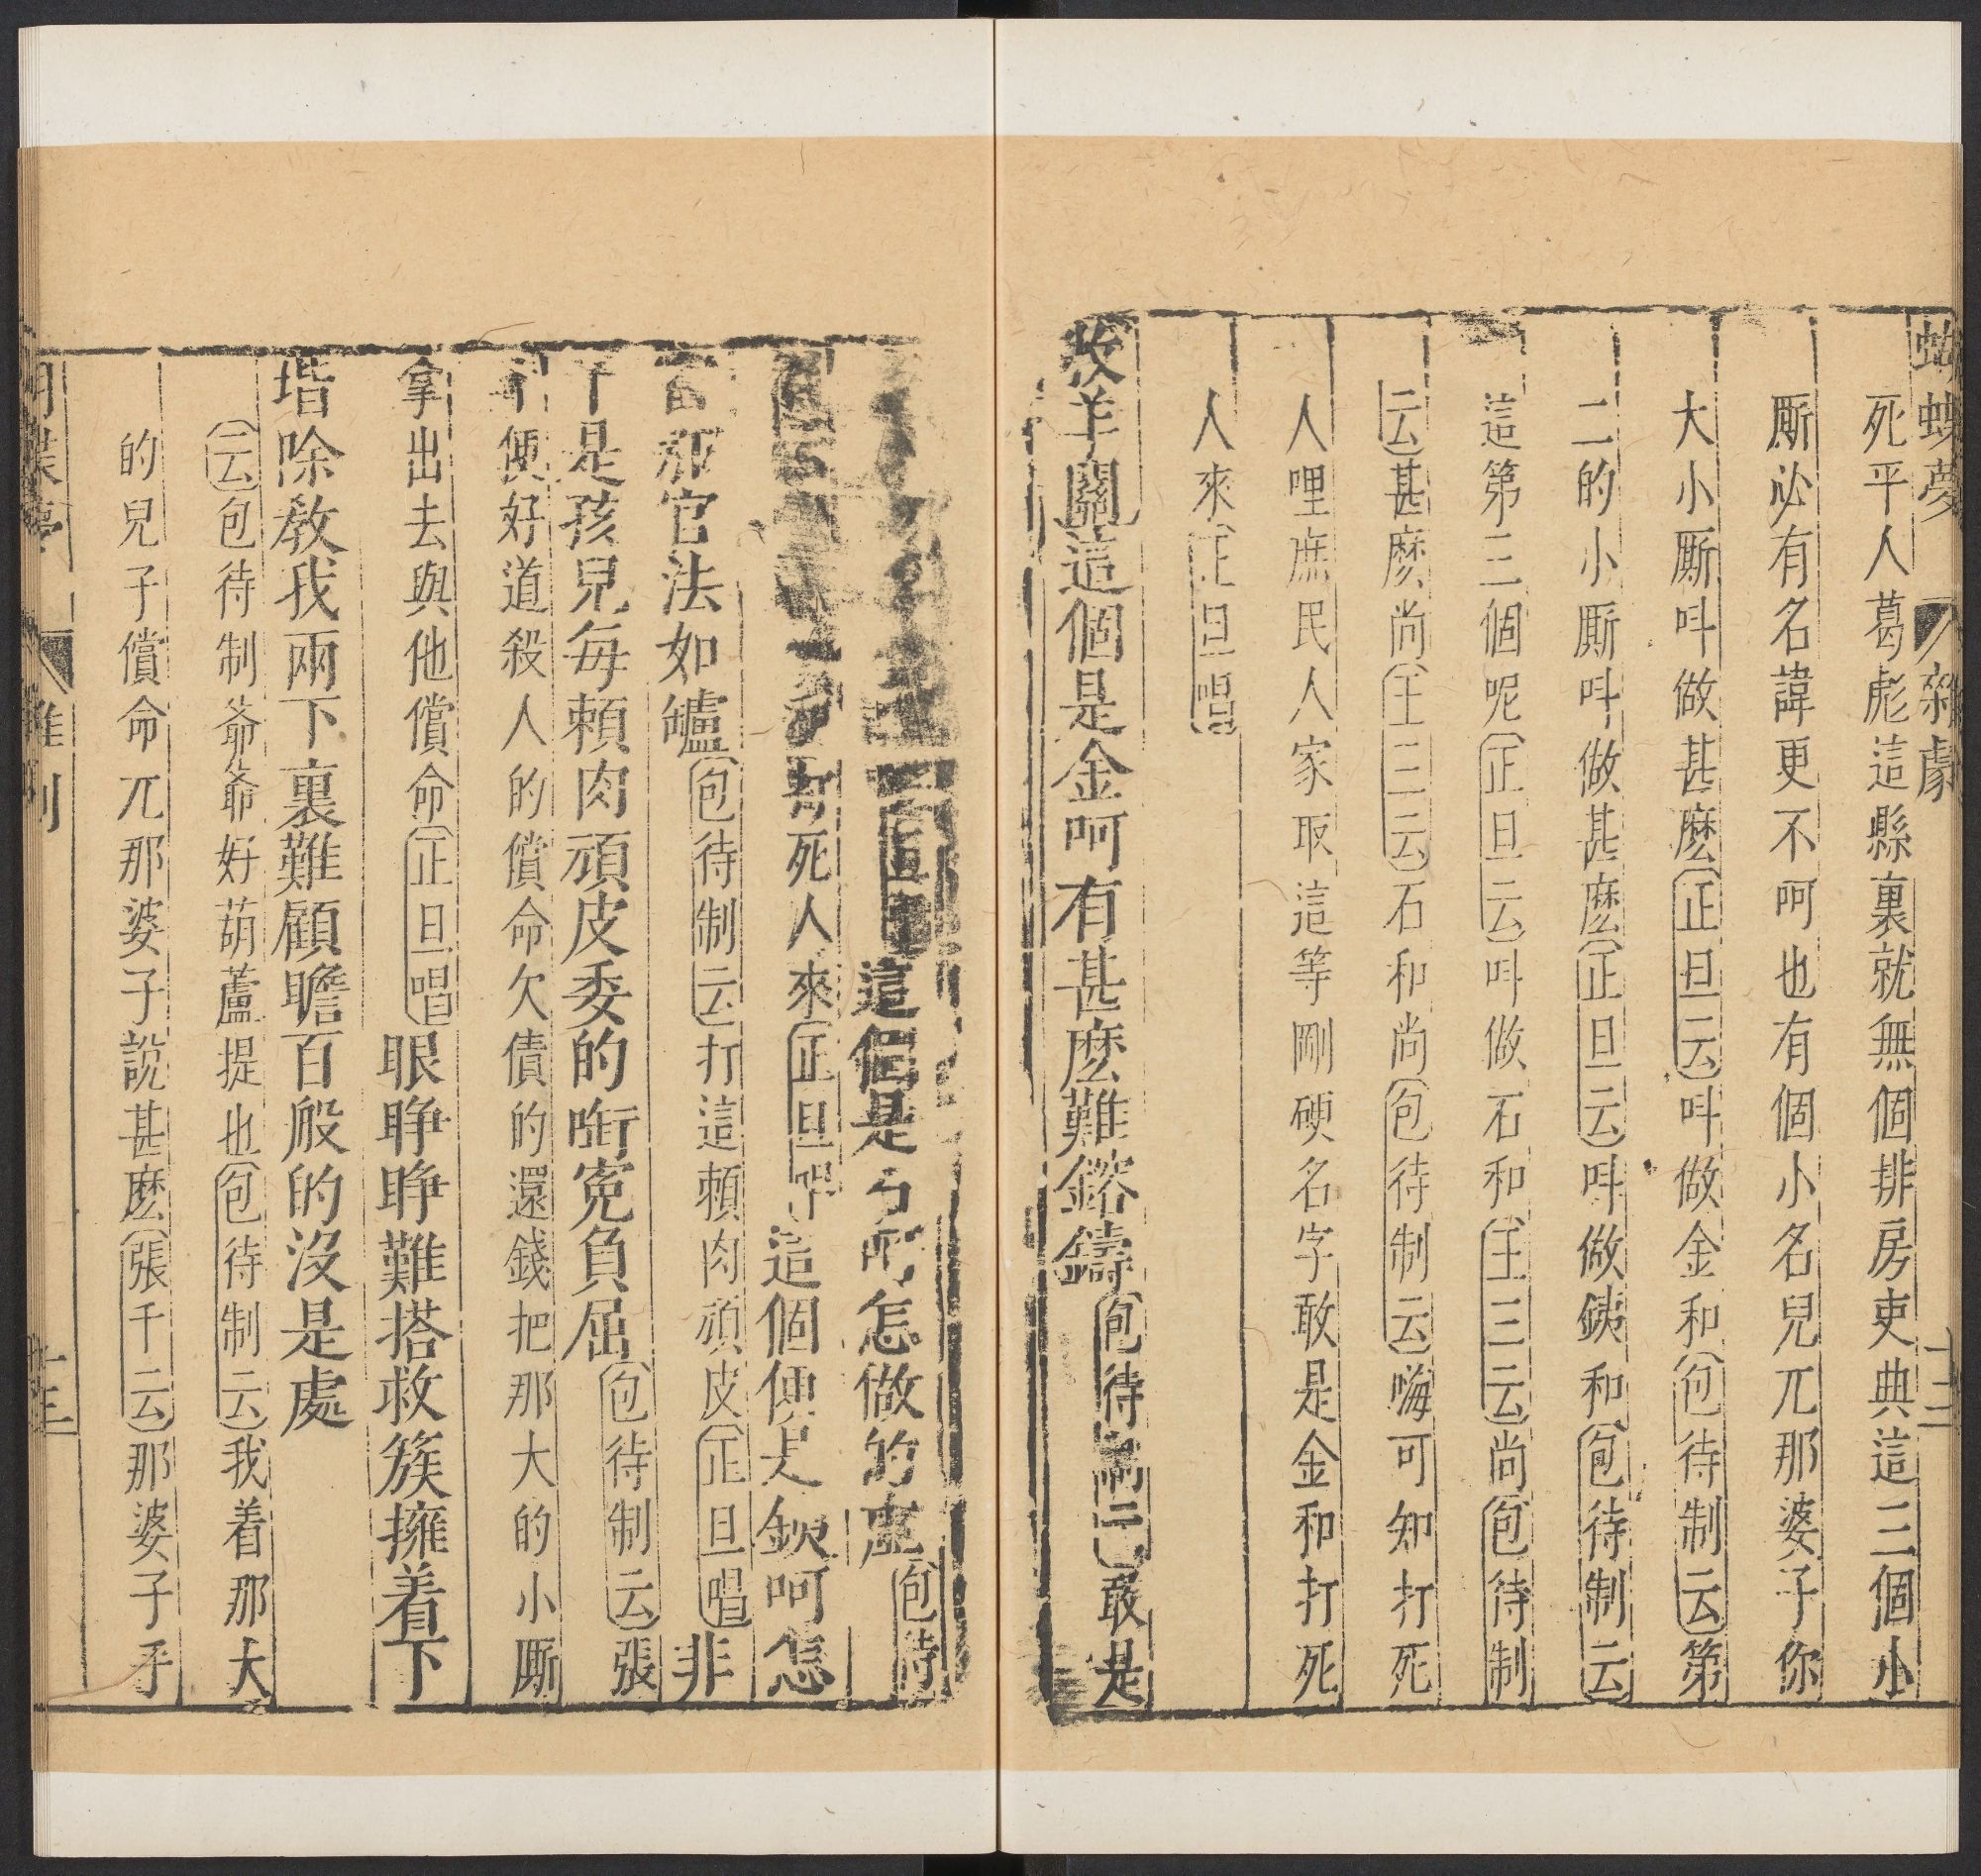 蝴蝶夢 雜劇 十三
死平人葛彪這縣裏就無個排房吏典這三個小
厮必有名諱更不呵也有個小名兒兀那婆子你
大小厮呌做甚麽正旦云呌做金和包待制云第
二的小厮呌做甚麽正旦云呌做鉄和包待制云
這第三個呢正旦云呌做石和王三云尚包待制
云甚麽尚王三云石和尚包待制云嗨可知打死
人哩庶民人家取這等剛硬名字敢是金和打死
人來正旦唱
牧羊關這個是金呵有甚麽難鎔鑄包待制云敢是
這個是石呵怎做的虛包待
打死人來正旦唱這個便是鉄呵怎
當那官法如爐包待制云打這賴肉頑皮正旦唱非
干是孩兒每賴肉頑皮委的啣寃負屈包待制云張
千便好道殺人的償命欠債的還錢把那大的小厮
拿出去與他償命正旦唱眼睁睁難搭救簇擁着下
堦除教我兩下裏難顧瞻百般的没是處
云包待制爺爺好葫蘆提也包待制云我着那大
的兒子償命兀那婆子說甚麽張千云那婆子手